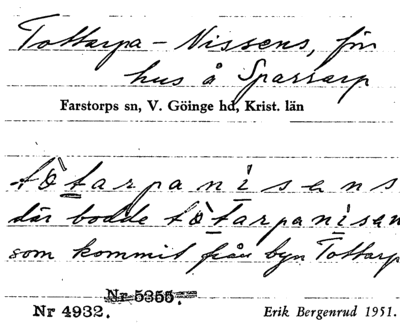 Tottarpa-Nissens, för
hus å Sparrarp
Farstorps sn, V. Göinge hd, Krist. län
tòtarpanìsens
där bodde tòtarpanìsen
som kommit från byn Tottarp
Nr 5355.
Nr 4932.
Erik Bergenrud 1951.